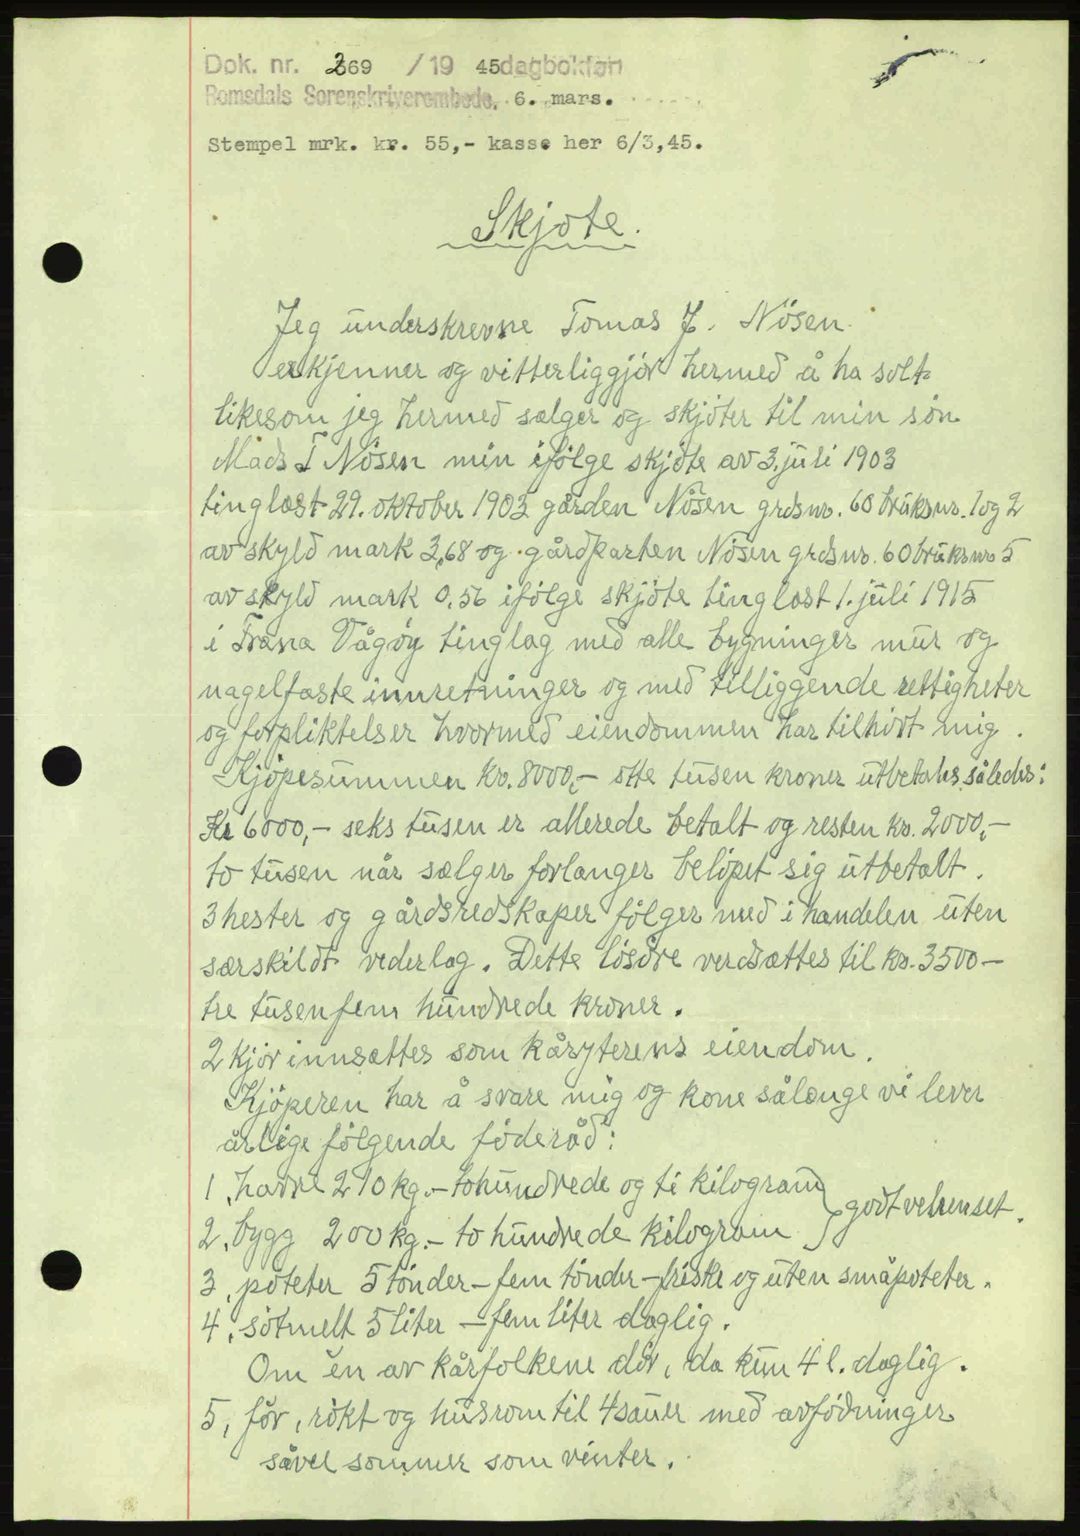 Dok. nr. 269 /19 45 dagbokført
Romsdals Sorenskriverembede, 6. mars.
Stempel mrk. kr. 55,- kasse her 6/3,45.
Skjøte.
Jeg underskrevne Tomas J. Nösen
erkjenner og vitterliggjör hermed å ha solt
likesom jeg hermed sælger og skjöter til min sön
Mads T Nösen min ifölge skjöte av 3. juli 1903
tinglæst 29. oktober 1903 gården Nösen grdsnr. 60 bruksnr. 1 og 2
av skyld mark 3,68 og gårdparten Nösen grdsnr. 60 bruksnr 5
av skyld mark 0.56 ifölge skjöte tinglæst 1. juli 1915
i Fræna Vågöy tinglag med alle bygninger mur og
nagelfaste innretninger og med tilliggende rettigheter
og forpliktelser hvormed eiendommen har tilhört mig.
Kjöpesummen Kr. 8000,- otte tusen kroner utbetales således:
Kr 6000,- seks tusen er allerede betalt og resten kr. 2000,-
to tusen når sælger forlanger belöpet sig utbetalt.
3 hester og gårdsredskaper fölger med i handelen uten
særskildt vederlag. Dette lösöre verdsættes til kr. 3500-
tre tusen fem hundrede kroner.
2 kjör innsættes som kåryterens eiendom.
Kjöperen har å svare mig og kone sålænge vi lever
årlige fölgende föderåd:
1, havre 210 kg.- tohundrede og ti kilogram
2, bygg 200 kg.- to hundrede kilogram } godt velrenset.
3, poteter 5 tönder - fem tönder - friske og uten småpoteter.
4, sötmelt 5 liter - fem liter daglig.
Om en av kårfolkene dör, da kun 4 l. daglig.
5, fôr, rökt og husrom til 4 sauer med avfödninger
såvel sommer som vinter.